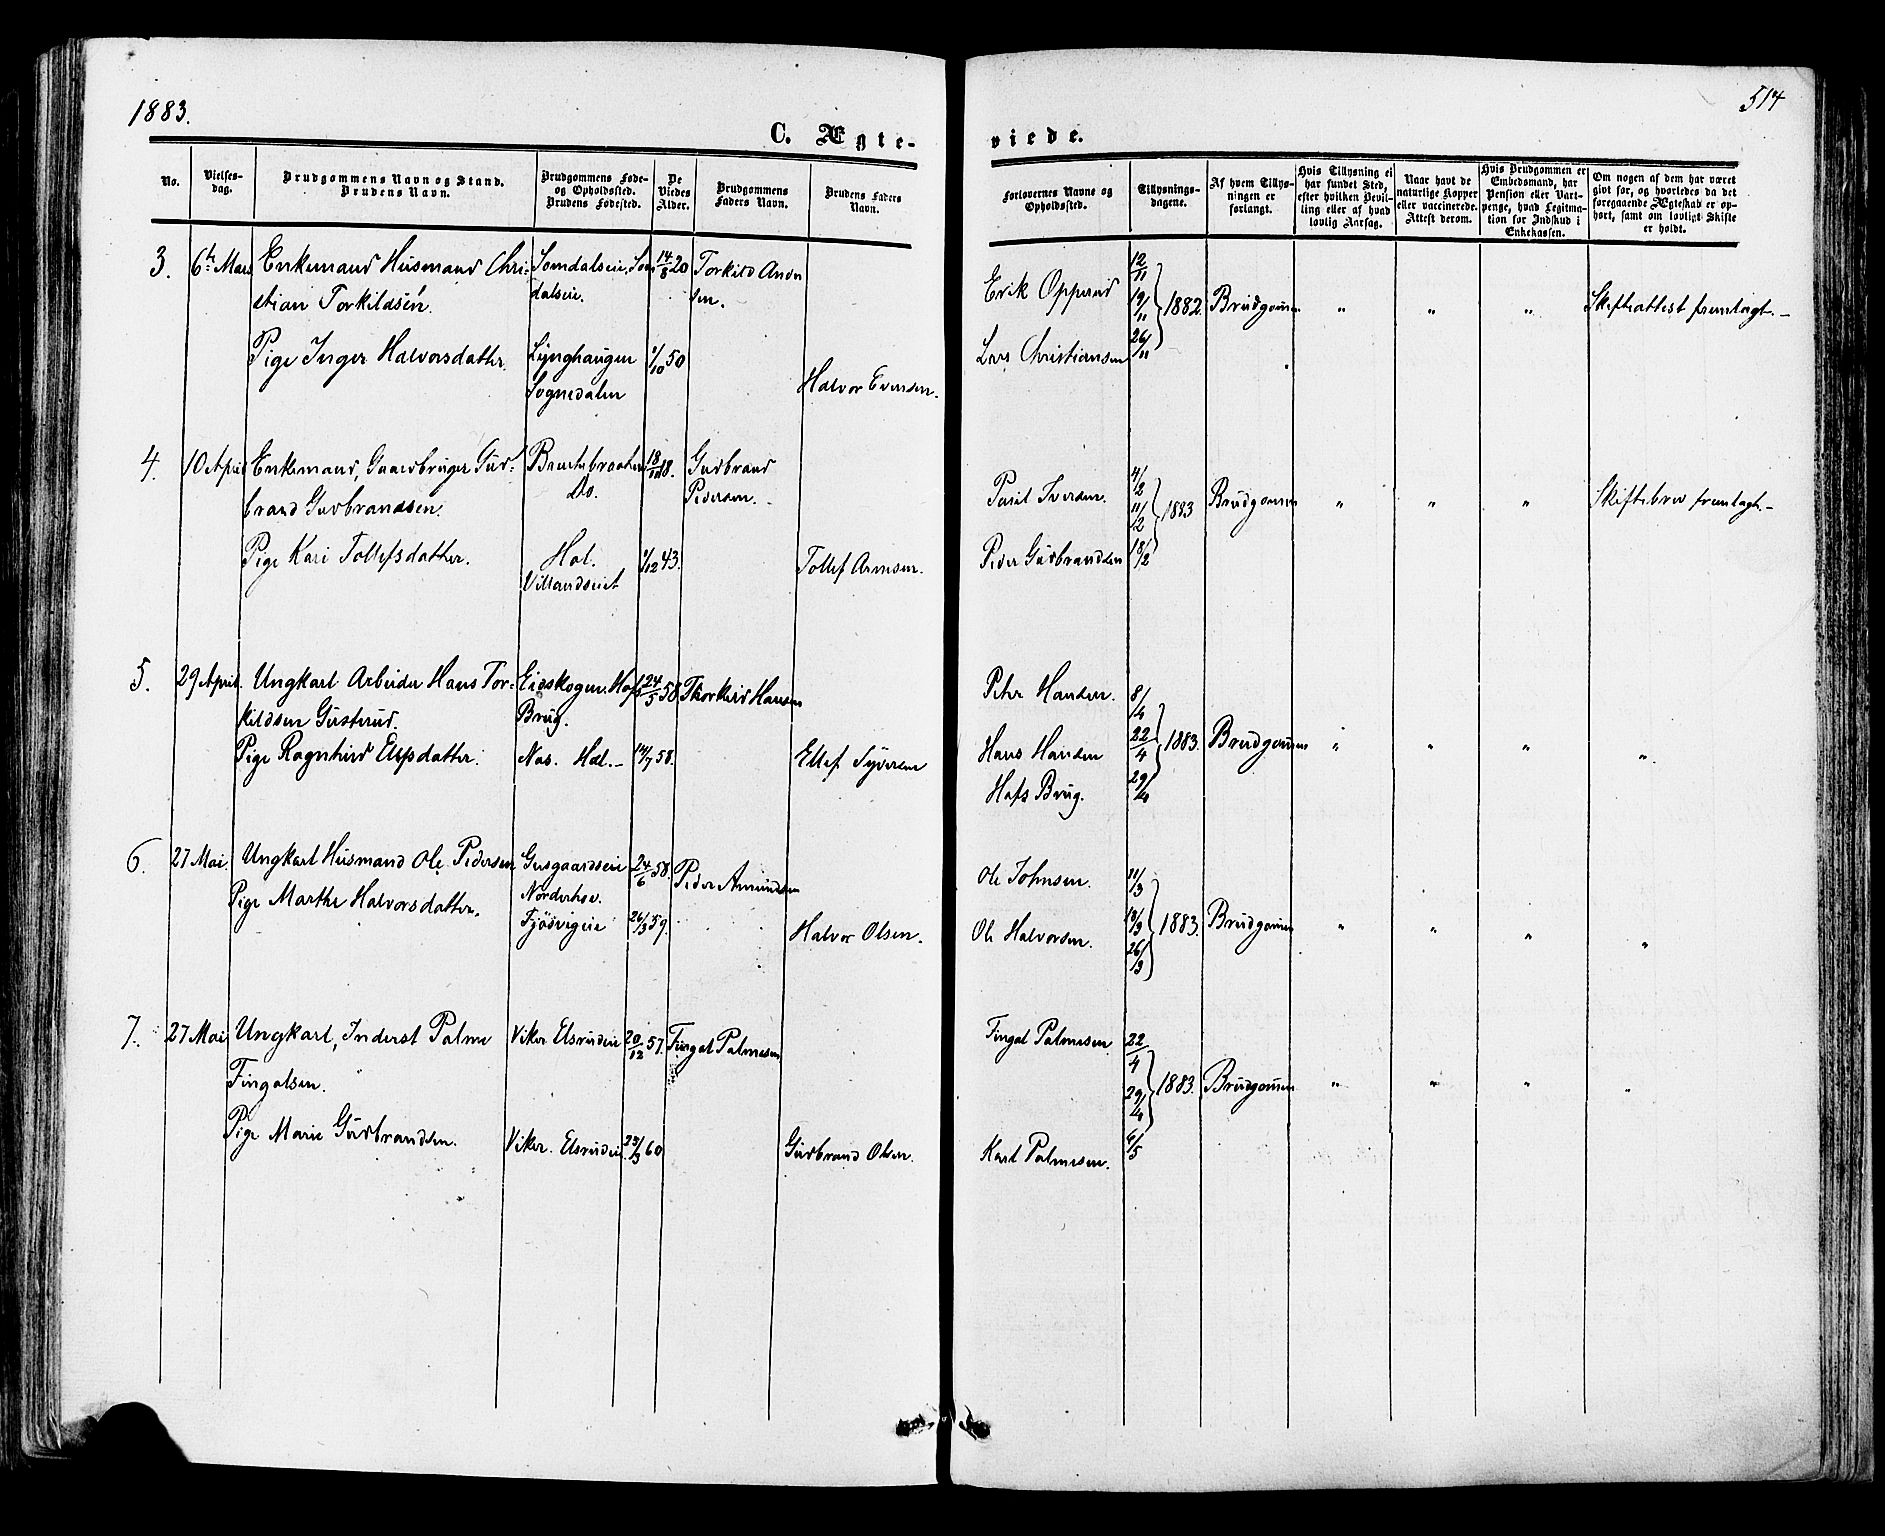 1883.
514
C. Ægte-
viede.
No.
Vielses-
dag.
Brudgommens Navn og Stand.
Brudens Navn.
Brudgommens Føde-
og Opholdssted.
Brudens Fødested.
De
Viedes
Alder.
Brudgommens
Faders Navn.
Brudens Faders
Navn.
Forlovernes Navne og
Opholdssted.
Tillysnings-
dagene.
Af hvem Tillys-
ningen er
forlangt.
Hvis Tillysning ei
har fundet Sted,
efter hvilken Bevil-
ling eller af hvad
lovlig Aarsag.
Naar havt de
naturlige Kopper
eller vaccinerede.
Attest derom.
Hvis Brudgommen er
Embedsmand, har
Pension eller Vart-
penge, hvad Legitima-
tion for Indskud i
Enkekassen.
Om nogen af dem har været
givt før, og hvorledes da det
foregaaende Ægteskab er op-
hørt, samt om lovligt Skifte
er holdt.
3. 6te Mars Enkemand Husmand Chri- Somdalseie, Som 14/8 20 Torkild Ander
stian Torkildsen. dalseie. sen.
Pige Inger Halvorsdatter. Lynghaugen 1/10 50
Sognedalen Halvor Evensen.
Erik Opperud 12/11
19/11 1882. Brudgommen " " " Skifteattest fremlagt.-
Lars Christiansen 26/11
4. 10 April Enkemand, Gaardbruger Gud- 18/18. Gudbrand
brand Gudbrandsen. Do. Pedersen.
Pige Kari Tollefsdatter. Hol. 1/12 43. Tollef Arnesen.
Villandseiet
Iversen. 4/2
11/2 1883 Brudgommen " " " Skiftebrev fremlagt.-
Peder Gudbrandsen 18/2
5. 29 April. Ungkarl Arbeider Hans Tor- Eidskogen. Hofs 24/5 58. Thorkild Hansen
kildsen Gusterud. Brug.
Pige Ragnhild Elefsdatter. Næs. Hal.- 14/7 58. Ellef Syversen
Peter Hansen. 8/4
Hans Hansen 22/4 1883. Brudgommen " " " "
Hofs Brug. 29/4
6. 27 Mai. Ungkarl Husmand Ole Pedersen Gusgaardseie 24/6 58. Peder Amundsen
Pige Marthe Halvorsdatter. Norderhov.
Fjøsvigeie 26/3 59. Halvor Olsen.
Ole Johnsen. 11/3
Ole Halvorsen. 18/3 1883. Brudgommen " " " "
26/3
7. 27 Mai Ungkarl, Inderst Palme Viker Elsrudeie 20/12 57. Fingal Palmesen
Fingalsen.
Pige Marie Gudbrandsen. Viker. Elsrudeie 23/3 60 Gudbrand Olsen.
Fingal Palmesen 22/4
29/4 1883. Brudgommen " " " "
Karl Palmesen. 6/5